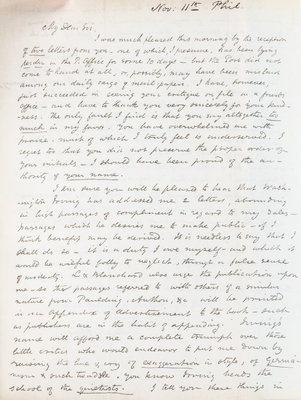 Nov. 11th Phil.
My Dear Sir,
I was much pleased this morning by the reception
of two letters from you, one of which, I presume, has been lying
perdu in the P. Office for some 10 days — but the Post did not
come to hand at all, or, possibly, may have been mislaid
among our daily cargo of mail paper. I have, however,
just succeeded in seeing your critique on file at a friend's
office — and have to thank you very sincerely for your kind-
ness. The only fault I find is that you say altogether too
much in my favor. You have overwhelmed me with
praise — much of which I truly feel is undeserved. I
regret too that you did not preserve the proper order of
your initials — I should have been proud of the au-
thority of your name.
I am sure you will be pleased to hear that Wash-
ington Irving has addressed me 2 letters, abounding
in high passages of compliment in regard to my Tales —
passages which he desires me to make public — if I
think benefit may be derived. It is needless to say that I
shall do so — it is a duty I owe myself — and which it
would be wilful folly to neglect, through a false sense
of modesty. L & Blanchard also urge the publication upon
me — so the passages referred to with others of a similar
nature from Paulding, &c will be printed
in an Appendix of Advertisement to the book — such
as publishers are in the habit of appending. Irving's
name will afford me a complete triumph over those
little critics who would endeavor to put me down by
raising the hue & cry of exaggeration in style, of German-
ism & such twaddle. You know Irving heads the
school of the quietists. I tell you these things in